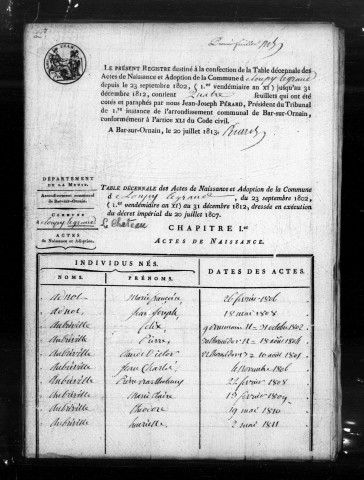 LE PRÉSENT REGISTRE destiné à la confection de la Table décennale des
Actes de Naissance et Adoption de la Commune d
depuis le 23 septembre 1802 (1.er vendémiaire an XI) jusqu'au 31
décembre 1812, contient Quatre feuillets qui ont été
cotés et paraphés par nous Jean-Joseph PÉRARD, Président du Tribunal
de 1.re instance de l'arrondissement communal de Bar-sur-Ornain,
conformément à l'article XLI du Code civil.
A Bar-sur-Ornain, le 20 juillet 1813.
DÉPARTEMENT
DE LA MEUSE.
Arrondissement communal
de Bar-sur-Ornain.
COMMUNE
d Louppy le grand
ACTES
de Naissance et Adoption.
TABLE DÉCENNALE des Actes de Naissance et Adoption de la Commune
d Louppy le grand, du 23 septembre 1802,
(1.er vendémiaire an XI) au 31 décembre 1812, dressée en exécution
du décret impérial du 20 juillet 1807.
Le Chateau
CHAPITRE I.er
ACTES DE NAISSANCE.
INDIVIDUS NÉS. DATES DES ACTES.
NOMS. PRÉNOMS.
Marie françoise 26 février 1806
Jean Joseph 18 mai 1808
Aubriville felix 31 octobre 1802
Aubriville Pierre 18 août 1804
Aubriville 10 août 1804
Aubriville Jean Charles 6 novembre 1806
Aubriville Pierre 22 février 1808
Aubriville Marie Claire février 1809
Aubriville Theodore 19 mai 1810
Aubriville henriette 2 mai 1811